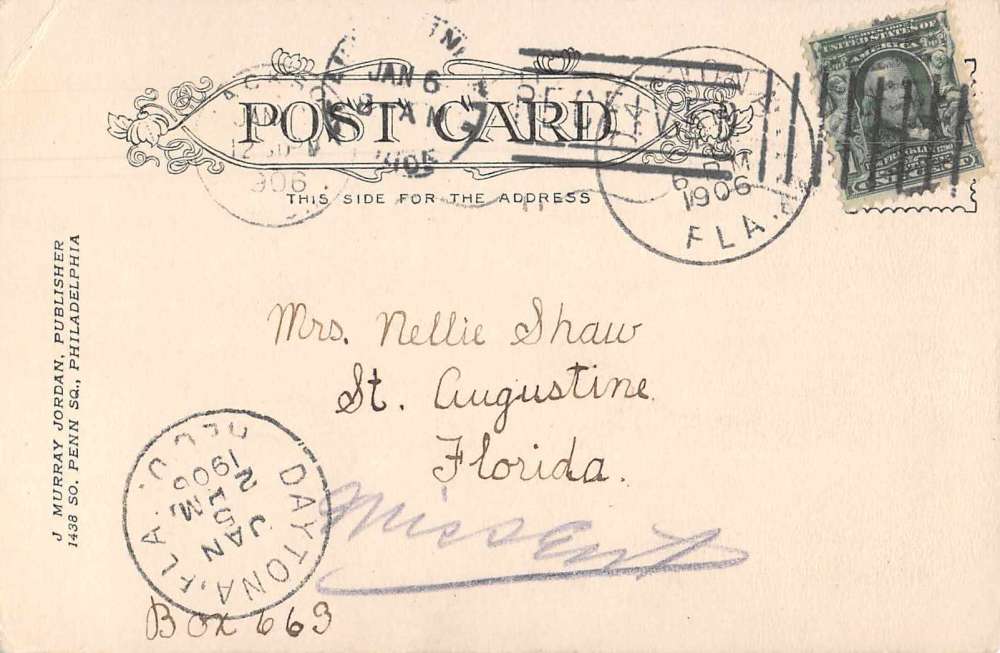 JAN 6
POST CARD
THIS SIDE FOR THE ADDRESS
UNITED STATES OF
AMERICA
1906
FLA.
906
J. MURRAY JORDAN, PUBLISHER
1438 SO. PENN SQ., PHILADELPHIA
Mrs. Nellie Shaw
St. Augustine
Florida.
Missent
DAYTONA, FLA.
REC'D.
JAN
5
2 PM
1906
Box 663